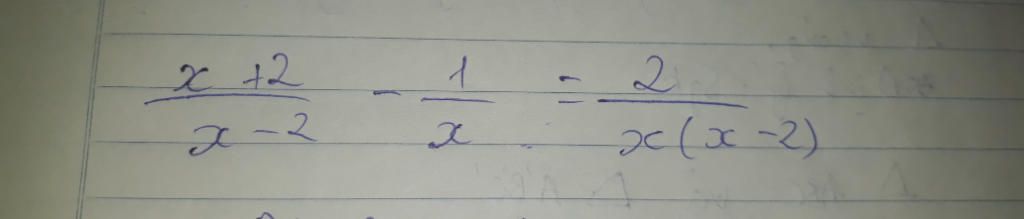 x+2/x-2 - 1/x = 2/x(x-2)